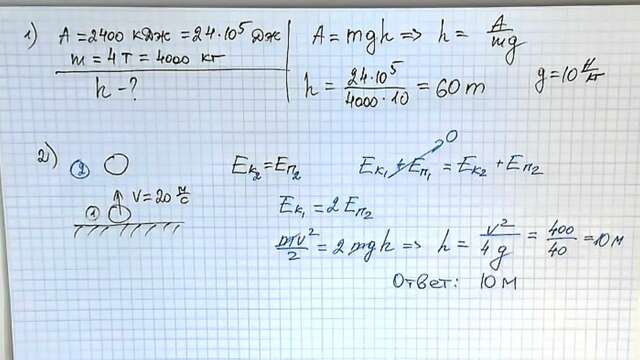 1) A = 2400 кДж = 24·10⁵ Дж
m = 4 т = 4000 кг
h - ?
A = mgh => h = A/mg
h = 24·10⁵/4000·10 = 60 m
g = 10 Н/кг
2)
②
① V = 20 м/с
Eк₂ = Eп₂
Eк₁ + Eп₁ 0 = Eк₂ + Eп₂
Eк₁ = 2 Eп₂
mv²/2 = 2 mgh => h = v²/4g = 400/40 = 10 м
Ответ: 10 м